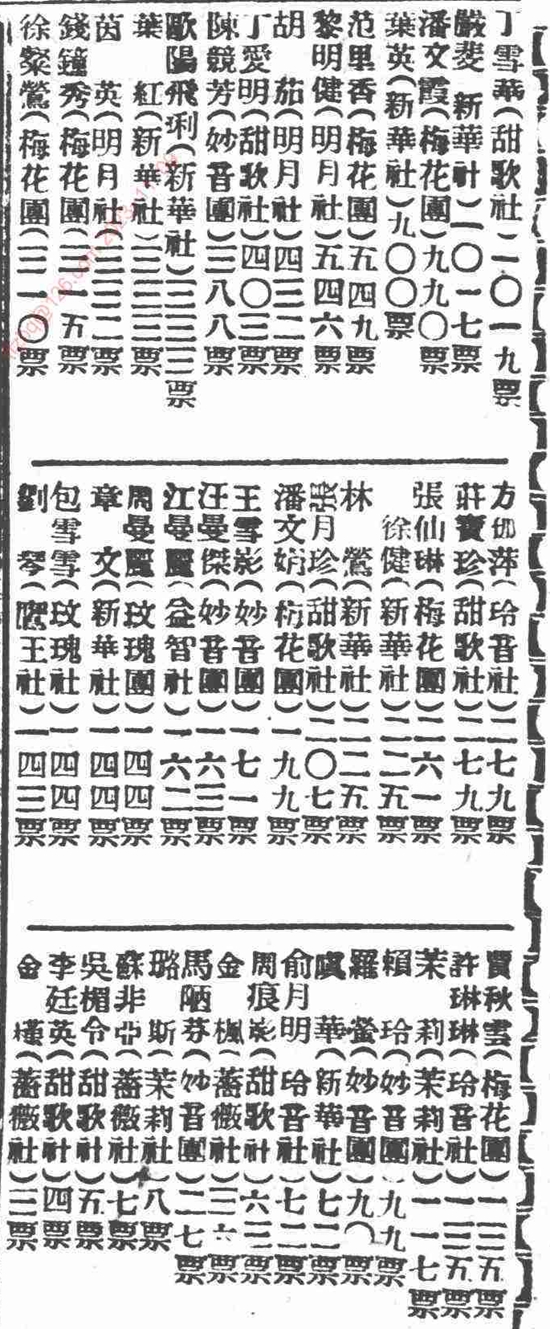 丁雪華(甜歌社)一〇一九票
嚴斐 新華社)一〇一七票
潘文霞(梅花團)九九〇票
葉英(新華社)九〇〇票
范里香(梅花團)五四九票
黎明健(明月社)五四六票
胡 茄(明月社)四三二票
丁愛明(甜歌社)四〇三票
陳競芳(妙音團)三八八票
歐陽飛琍(新華社)三三三票
葉 紅(新華社)三三三票
茵 英(明月社)三三二票
錢鐘秀(梅花團)三一五票
徐粲鶯(梅花團)三一〇票
方 萍(玲音社)二七九票
莊寶珍(甜歌社)二七九票
張仙琳(梅花團)二六一票
徐健(新華社)二二五票
林 鶯(新華社)二二五票
張月珍(甜歌社)二〇七票
潘文娟(梅花團)一九九票
王雪影(妙音團)一七一票
汪曼傑(妙音團)一六三票
江曼麗(益智社)一六二票
周曼麗(玫瑰團)一四四票
章 文(新華社)一四四票
包雪雪(玫瑰社)一四四票
劉 琴 鷹王社)一四三票
賈秋雲(梅花團)一三五票
許琳琳(玲音社)一三五票
茉 莉(茉莉社)一一七票
賴 玲(妙音團)九九票
羅 螢(妙音團)九〇票
虞 華(新華社)七二票
俞月明 玲音社)七二票
周痕影(甜歌社)六三票
金 楓(薔薇社)三六票
馬陋芬(妙音團)二七票
璐 斯(茉莉社)八票
蘇非亞(薔薇社)七票
吳楣令(甜歌社)五票
李廷英(甜歌社)四票
金 槿(薔薇社)三票